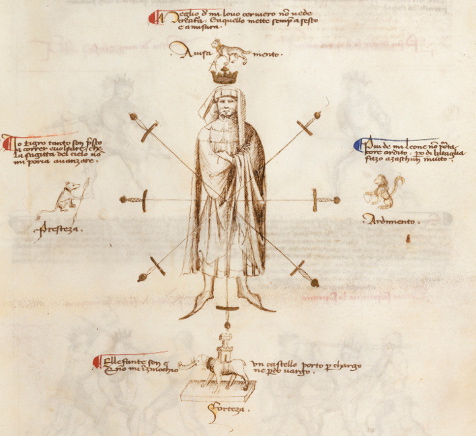 Meglio d mi lovo cerviero no vede
creatura. E aquello metto semp a sesto
e a misura.
Avisamento.
Io tigro tanto son psto
a correr e voltare, che
la sagitta del cielo no
mi poria avanzare.
Presteza.
Piu de mi leone no porta
core ardito. po di bataglia
fazo a zaschun invito.
Ardimento.
Ellefante son e un castello porto p chargo
E no mi inzenochio ne pdo vargo.
Forteza.